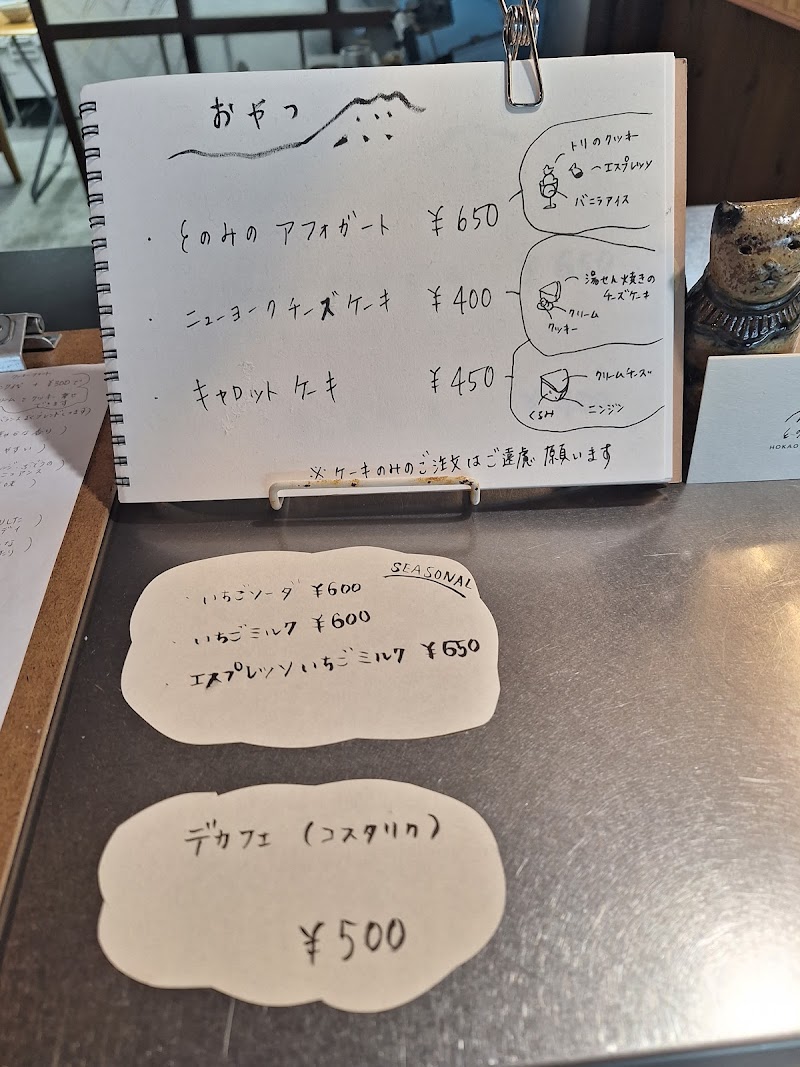 おやつ
・とのみの アフォガート ¥650
トリのクッキー
エスプレッソ
バニラアイス
・ニューヨークチーズケーキ ¥400
湯せん焼きの
チーズケーキ
クリーム
クッキー
・キャロットケーキ ¥450
クリームチーズ
くるみ
ニンジン
※ケーキのみのご注文はご遠慮願います
SEASONAL
・いちごソーダ ¥600
・いちごミルク ¥600
・エスプレッソいちごミルク ¥650
デカフェ (コスタリカ)
¥500
HOKAO